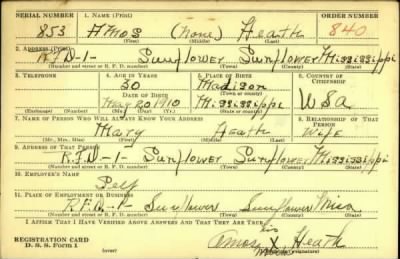 SERIAL NUMBER 1. NAME (Print) ORDER NUMBER
853 Amos (None) Heath 840
2. ADDRESS (Print)
R.F.D-1- Sunflower Sunflower Mississippi
(Number and street or R. F. D. number) (Town) (County) (State)
3. TELEPHONE 4. AGE IN YEARS 5. PLACE OF BIRTH 6. COUNTRY OF CITIZENSHIP
30 Madison
DATE OF BIRTH (Town or county)
May 20 1910 Mississippi USA
(Exchange) (Number) (Mo.) (Day) (Yr.) (State or country)
7. NAME OF PERSON WHO WILL ALWAYS KNOW YOUR ADDRESS 8. RELATIONSHIP OF THAT PERSON
Mary Heath Wife
(Mr., Mrs., Miss) (First) (Middle) (Last)
9. ADDRESS OF THAT PERSON
R.F.D-1- Sunflower Sunflower Mississippi
(Number and street or R. F. D. number) (Town) (County) (State)
10. EMPLOYER'S NAME
Self
11. PLACE OF EMPLOYMENT OR BUSINESS
R.F.D-1- Sunflower Sunflower Miss
(Number and street or R. F. D. number) (Town) (County) (State)
I AFFIRM THAT I HAVE VERIFIED ABOVE ANSWERS AND THAT THEY ARE TRUE.
his
REGISTRATION CARD Amos X Heath
D. S. S. Form 1 (over) mark (signature)